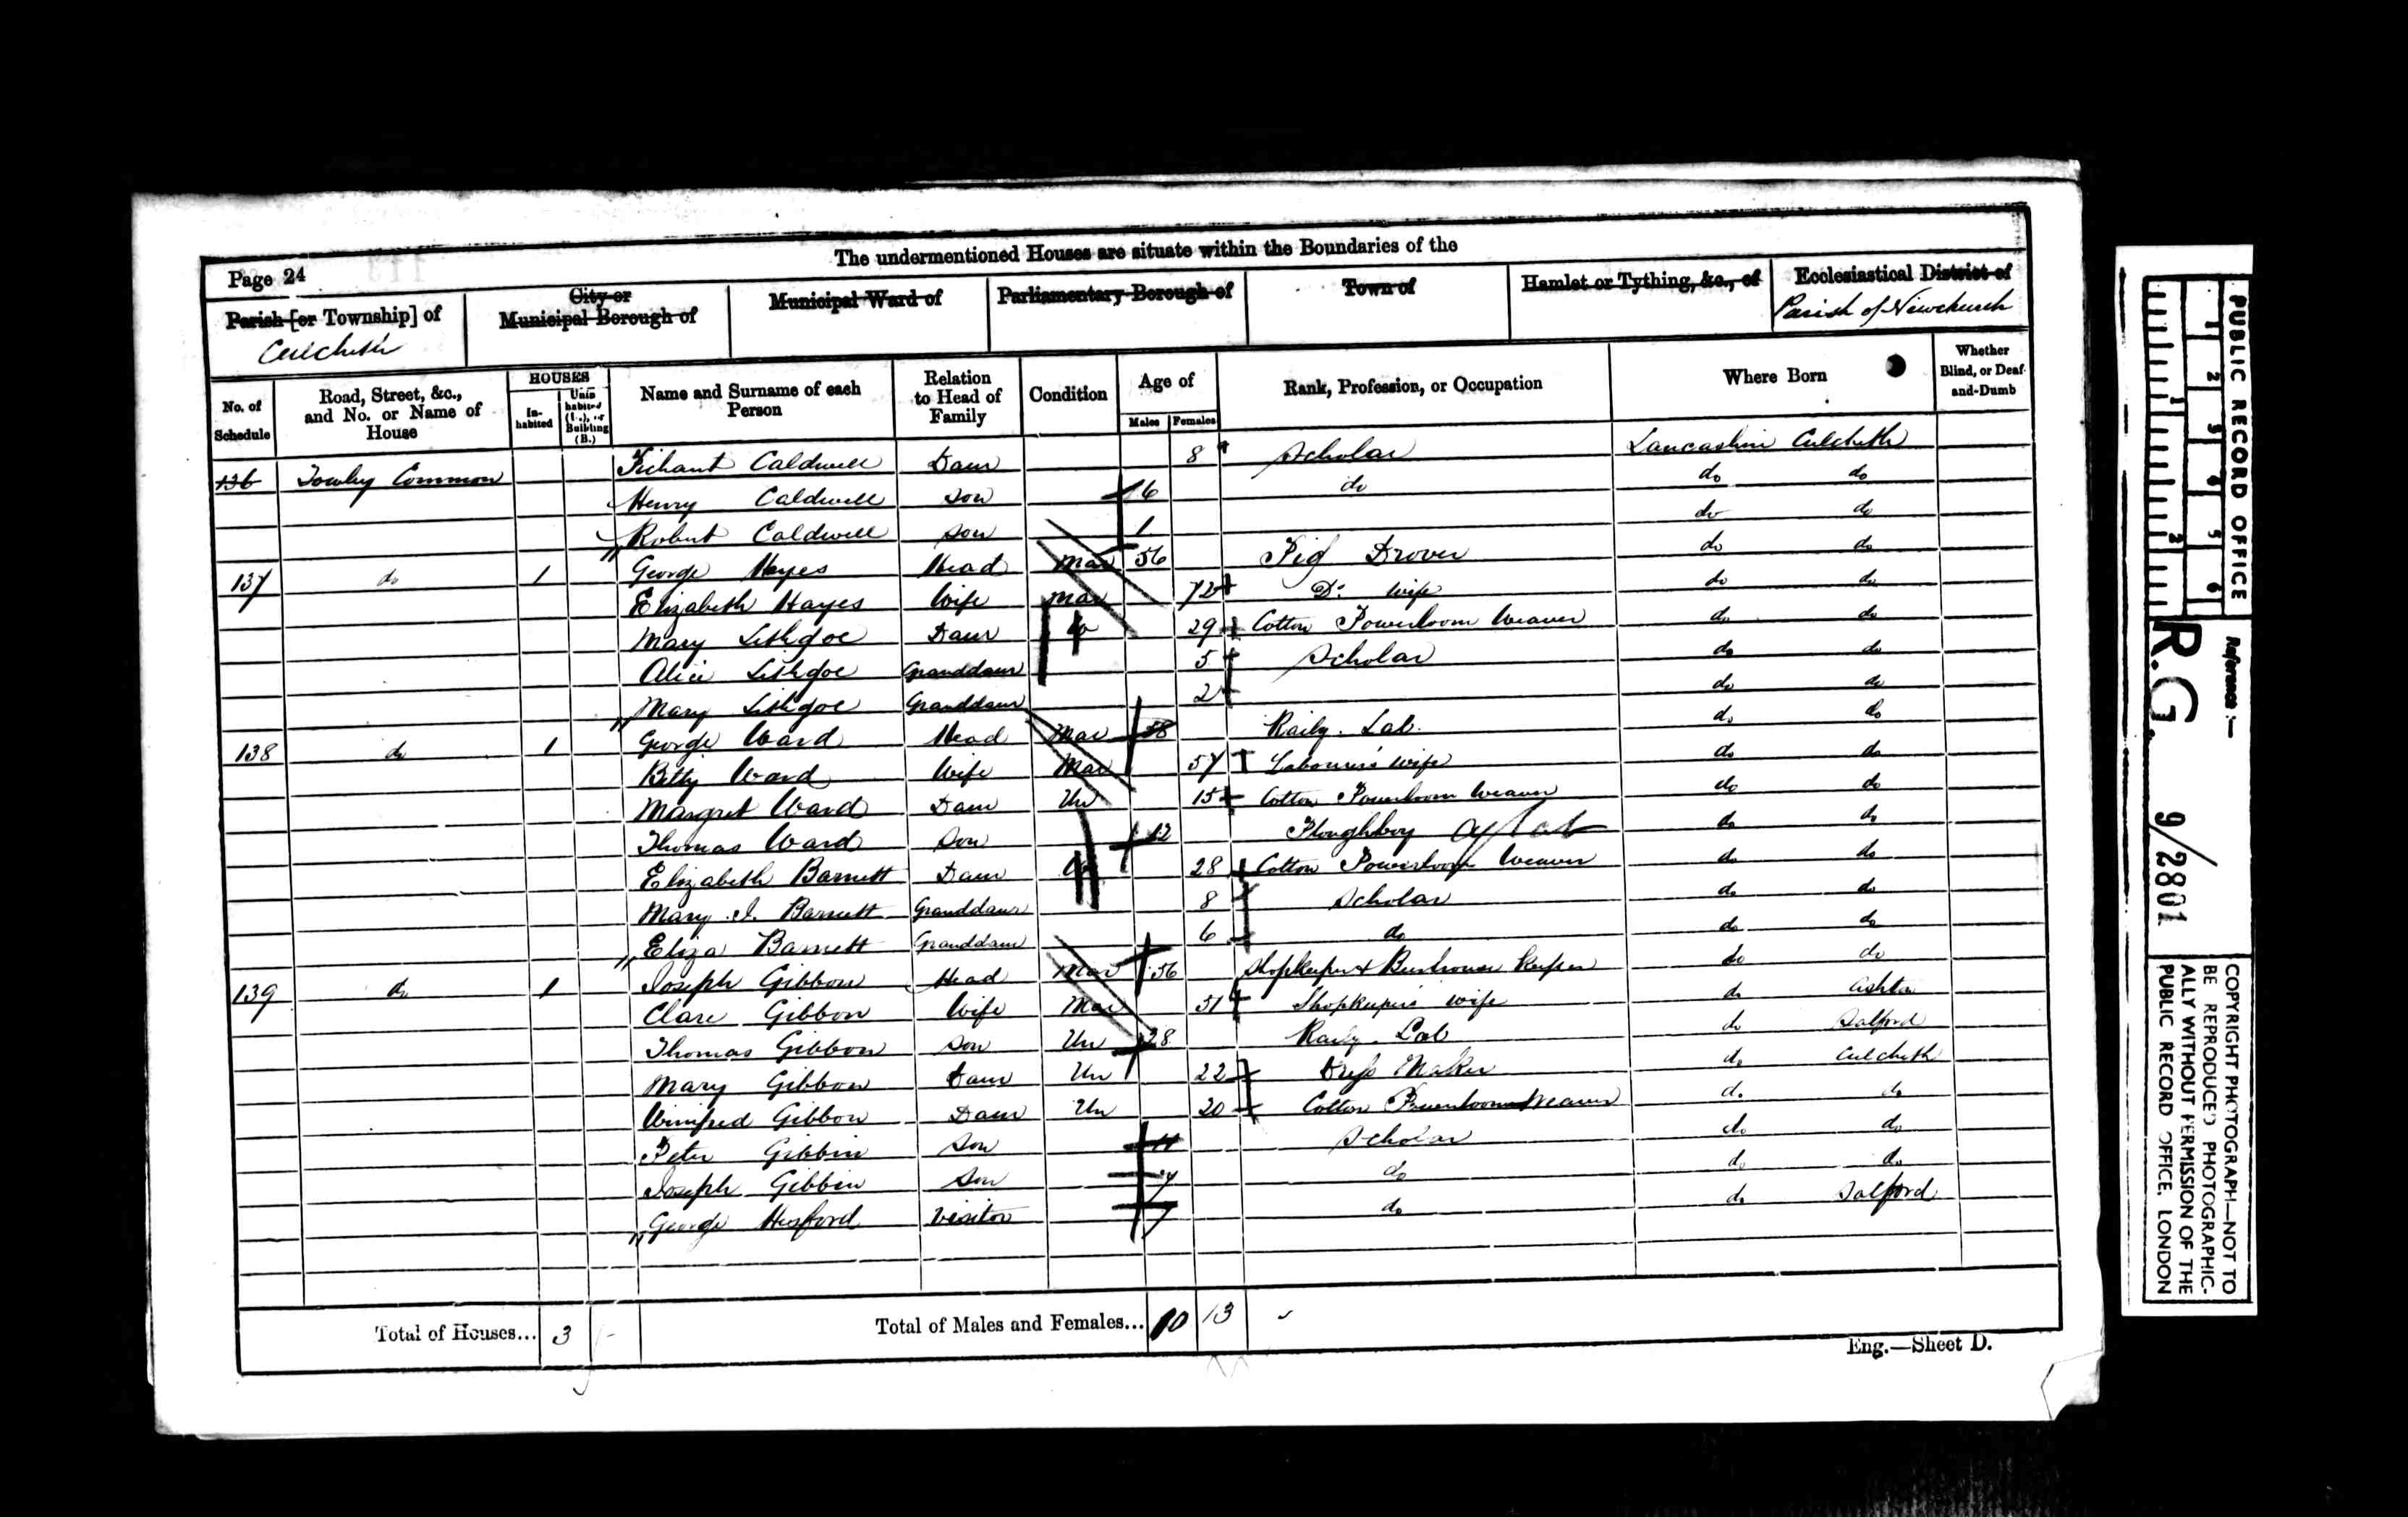 The undermentioned Houses are situate within the Boundaries of the
Page 24
Parish [or Township] of
Culcheth
City or
Municipal Borough of
Municipal Ward of
Parliamentary Borough of
Town of
Hamlet or Tything, &c., of
Ecclesiastical District of
Parish of Newchurch
No. of Schedule
Road, Street, &c., and No. or Name of House
HOUSES
In-habited
Unin-habited (U.), or Building (B.)
Name and Surname of each Person
Relation to Head of Family
Condition
Age of
Males
Females
Rank, Profession, or Occupation
Where Born
Whether Blind, or Deaf-and-Dumb
136 Common Caldwell Daur 8 Scholar Lancashire Culcheth
Henry Caldwell Son 6 do do do
Robert Caldwell Son 1 do do
137 do 1 George Hayes Head Mar 56 Pig Drover do do
Elizabeth Hayes Wife Mar 72 Do wife do do
Mary Lithgoe Daur 29 Cotton Powerloom Weaver do do
Alice Lithgoe Granddaur 5 Scholar do do
Mary Lithgoe Granddaur 2 do do
138 do 1 George Ward Head Mar 58 Railwy. Lab. do do
Betty Ward Wife Mar 57 Labourer's wife do do
Margret Ward Daur Un 15 Cotton Powerloom Weaver do do
Thomas Ward Son 12 Ploughboy do do
Elizabeth Barnett Daur 28 Cotton Powerloom Weaver do do
Mary J. Barnett Granddaur 8 Scholar do do
Eliza Barnett Granddaur 6 do do do
139 do 1 Joseph Gibbon Head Mar 56 Shopkeeper & Beerhouse Keeper do do
Clare Gibbon Wife Mar 51 Shopkeeper's wife do Ashton
Thomas Gibbon Son Un 28 Railwy. Lab do Salford
Mary Gibbon Daur Un 22 Dress Maker do Culcheth
Winifred Gibbon Daur Un 20 Cotton Powerloom Weaver do do
Peter Gibbin Son 11 Scholar do do
Joseph Gibbin Son 7 do do do
George Hesford Visitor 7 do do Salford
Total of Houses... 3
Total of Males and Females... 10 13
Eng.—Sheet D.
PUBLIC RECORD OFFICE
1 2 3 4 5 6
1 2
Reference :—
R.G. 9/2801
COPYRIGHT PHOTOGRAPH—NOT TO
BE REPRODUCED PHOTOGRAPHIC-
ALLY WITHOUT PERMISSION OF THE
PUBLIC RECORD OFFICE, LONDON